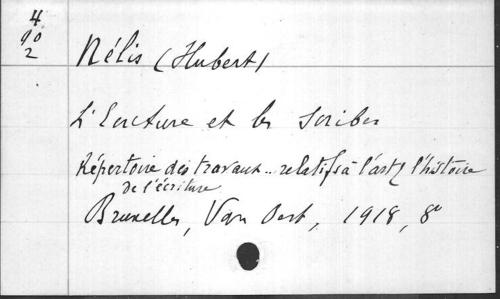 4
90
2
Nélis (Hubert)
L'Ecriture et les Scribes
Répertoire des travaux .. relatifs à l'art & l'histoire
de l'écriture
Bruxelles, Van Oest, 1918, 8°